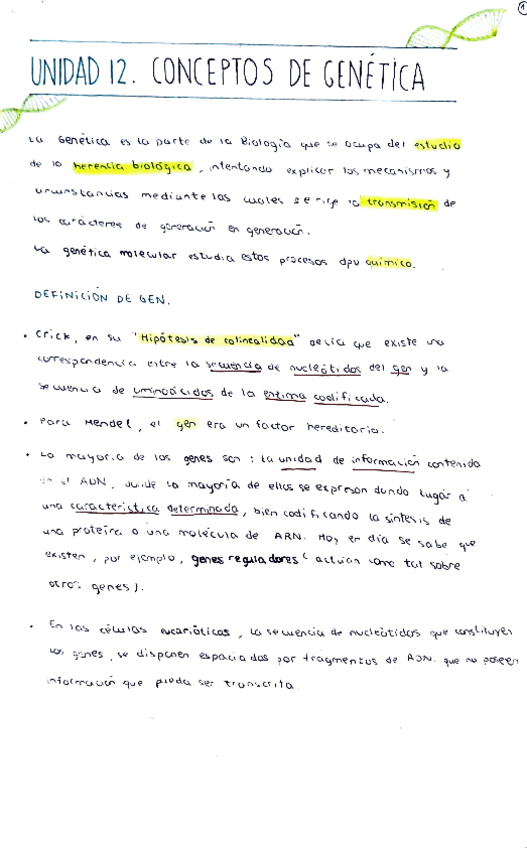 1
UNIDAD 12. CONCEPTOS DE GENÉTICA
La Genética es la parte de la Biología que se ocupa del estudio
de la herencia biológica, intentando explicar los mecanismos y
circunstancias mediante los cuales se rige la transmisión de
los carácteres de generación en generación.
La genética molecular estudia estos procesos dpv químico.
DEFINICIÓN DE GEN.
• Crick, en su "Hipótesis de colinealidad" decía que existe una
correspondencia entre la secuencia de nucleótidos del gen y la
secuencia de aminoácidos de la enzima codificada.
• Para Mendel, el gen era un factor hereditario.
• La mayoría de los genes son: la unidad de información contenida
en el ADN, donde la mayoría de ellos se expresan dando lugar a
una característica determinada, bien codificando la síntesis de
una proteína o una molécula de ARN. Hoy en día se sabe que
existen, por ejemplo, genes reguladores (actúan como tal sobre
otros genes).
• En las células eucarióticas, la secuencia de nucleótidos que constituyen
los genes, se disponen espaciados por fragmentos de ADN. que no poseen
información que pueda ser transcrita.